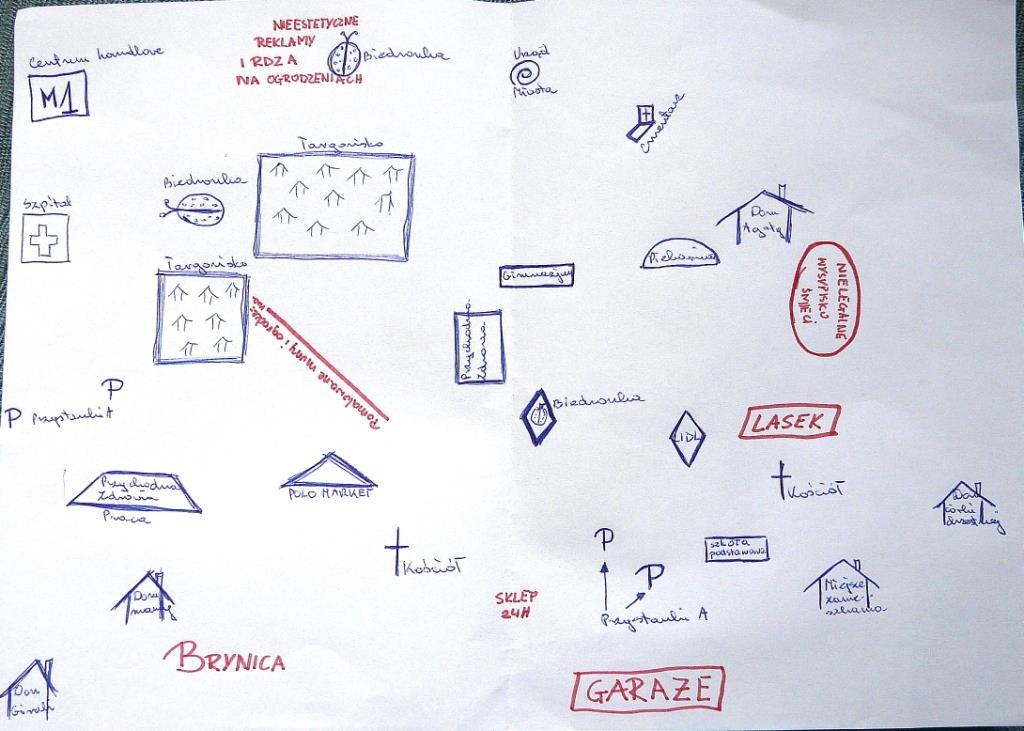 NIEESTETYCZNE
REKLAMY
I RDZA
NA OGRODZENIACH
Biedronka
Centrum handlowe
M1
Urząd
Miasta
Cmentarz
Targowisko
Biedronka
Szpital
Dom
Agaty
Piekarnia
NIELEGALNE
WYSYPISKO
ŚMIECI
Gimnazjum
Targowisko
Pomalowane mury i ogrodze-
nia
Przychodnia
Zdrowia
P
P Przystanki A
Biedronka
LIDL
LASEK
Kościół
Przychodnia
Zdrowia
Praca
POLO MARKET
Kościół
P
P
Przystanki A
szkoła
podstawowa
Dom
córki
Miejsce
zamie-
szkania
Dom
mamy
SKLEP
24H
BRYNICA
Dom
GARAŻE